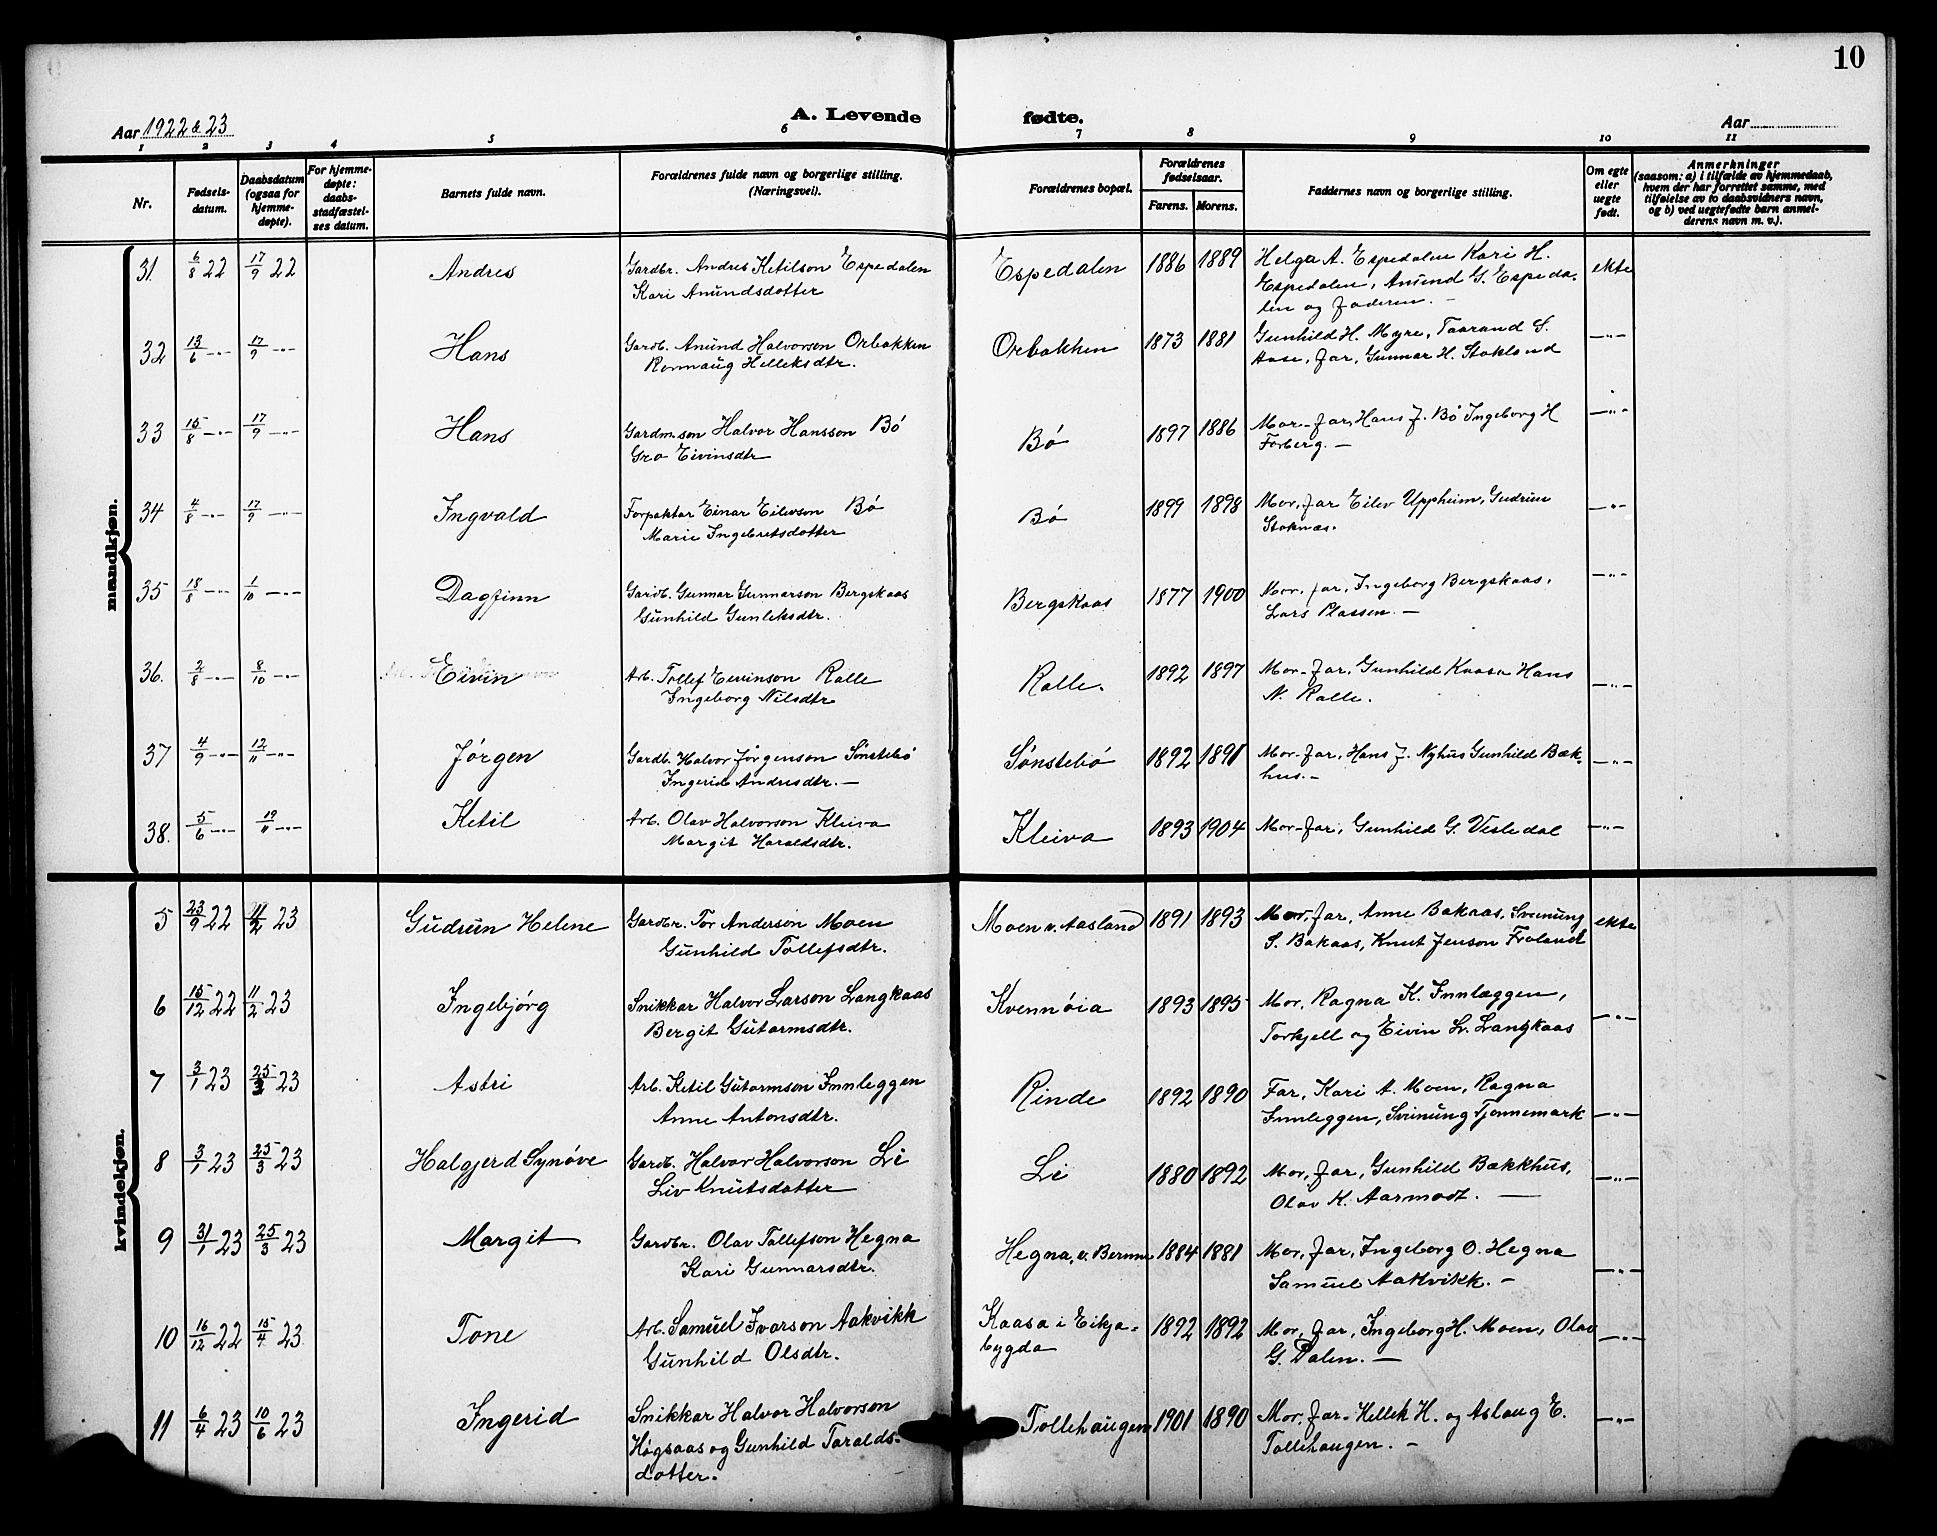 10
Aar 1922 & 23
A. Levende fødte.
Aar
1 2 3 4 5 6 7 8 9 10 11
Nr.
Fødsels-
datum.
Daabsdatum
(ogsaa for
hjemme-
døpte).
For hjemme-
døpte:
daabs-
stadfæstel-
ses datum.
Barnets fulde navn.
Forældrenes fulde navn og borgerlige stilling.
(Næringsvei).
Forældrenes bopæl.
Forældrenes
fødselsaar.
Farens. Morens.
Faddernes navn og borgerlige stilling.
Om egte
eller
uegte
født.
Anmerkninger
(saasom: a) i tilfælde av hjemmedaab,
hvem der har forrettet samme, med
tilføielse av to daabsvidners navn,
og b) ved uegtefødte barn anmel-
derens navn m. v.).
mandkjøn.
31 6/8 22 17/9 22 Andres Gardbr. Andres Ketilson Espedalen Espedalen 1886 1889 Helga A. Espedalen Kari H. ekte
Kari Anundsdotter Espedalen, Anund G. Espeda-
len og faderen. —
32 13/6 —"— 17/9 —"— Hans Gardb. Anund Halvorsen Orbakken Orbakken 1873 1881 Gunhild H. Myre, Taarand S. —"—
Ronnaug Helleksdtr. Aase, far, Gunnar H. Stokland
33 15/8 —"— 17/9 —"— Hans Gardm.son Halvor Hansson Bø Bø 1897 1886 Mor-far, Hans J. Bø Ingeborg H —"—
Gro Eivinsdtr Forberg. —
34 4/8 —"— 17/9 —"— Ingvald Forpaktar Einar Eilevson Bø Bø 1899 1898 Mor, far Eilev Uppheim, Gudrun —"—
Marie Ingebretsdotter Stoknæs.
35 18/8 —"— 1/10 —"— Dagfinn Gardb. Gunnar Gunnarson Bergskaas Bergskaas 1877 1900 Mor, far, Ingeborg Bergskaas, —"—
Gunhild Gunleksdtr. Lars Plassen. —
36. 2/8 —"— 8/10 —"— Eivin Arb. Tollef Eivinson Ralle Ralle. 1892 1897 Mor-far, Gunhild Kaasa Hans —"—
Ingeborg Nilsdtr N. Ralle.
37 4/9 —"— 12/11 —"— Jørgen Gardb. Halvor Jørgenson Sønstebø Sønstebø 1892 1891 Mor-far, Hans J. Nyhus Gunhild Bæk- —"—
Ingerid Andresdtr. — hus.—
38. 5/6 —"— 19/11 —"— Ketil Arb. Olav Halvorson Kleiva Kleiva 1893 1904 Mor-far, Gunhild G. Vesledal —"—
Margit Haraldsdtr.
kvindekjøn.
5 23/9 22 11/2 23 Gudrun Helene Gardbr. Tor Anderson Moen Moen v. Aasland 1891 1893 Mor, far, Anne Bakaas, Sveinung ekte
Gunhild Tollefsdtr. S. Bakaas, Knut Jenson Froland
6 15/12 22 11/2 23 Ingebjørg Snikkar Halvor Larson Langkaas Kvennøia 1893 1895 Mor, Ragna K. Innlæggen, —"—
Bergit Gutormsdtr. Torkjell og Eivin L. Langkaas
7 3/1 23 25/3 23 Astri Arb. Ketil Gutormson Innleggen Rinde 1892 1890 Far, Kari A. Moen, Ragna
Anne Antonsdtr. Innleggen, Sveinung Tjønnemark —"—
8 3/1 23 25/3 23 Halgjerd Synøve Gardb. Halvor Halvorson Li Li 1880 1892 Mor, far, Gunhild Bækkhus, —"—
Liv Knutsdotter Olav K. Aarmodt. —
9 31/1 23 25/3 23 Margit Gardbr. Olav Tollefson Hegna Hegna, v. Bernne 1884 1881 Mor, far, Ingeborg O. Hegna
Kari Gunnarsdtr. Samuel Aakvikk. — —"—
10 16/12 22 15/4 23 Tone Arb. Samuel Ivarson Aakvikk Kaasa i Eikja- 1892 1892 Mor, far, Ingeborg H. Moen, Olav —"—
Gunhild Olsdtr. bygda G. Dalen. —
11 6/4 23 10/6 23 Ingerid Snikkar Halvor Halvorson Tollehaugen 1901 1890 Mor, far- Hellek H. og Aslaug E. —"—
Høgsaas og Gunhild Taralds- Tollehaugen. —
dotter.